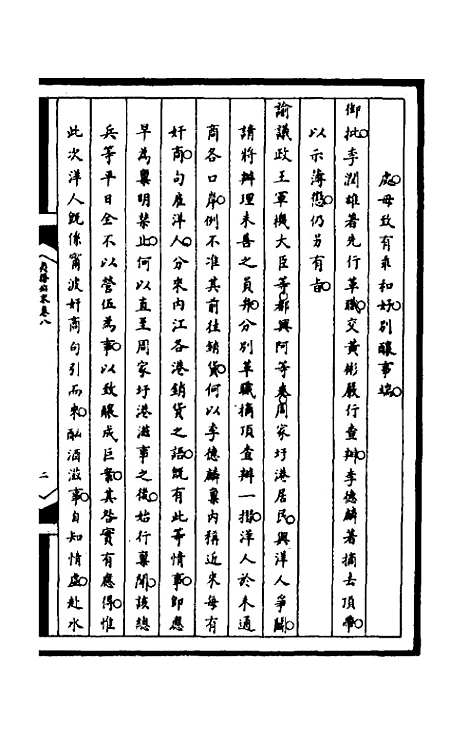 處毋致有乖和好別釀事端
御批李潤雄著先行革職交黃彬嚴行查辦李德麟著摘去頂帶
以示薄懲仍另有旨
諭議政王軍機大臣等都興阿等奏周家圩港居民與洋人爭鬬
請將辦理未善之員弁分別革職摘頂查辦一摺洋人於未通
商各口岸例不准其前往銷貨何以李德麟稟內稱近來每有
奸商句雇洋人分來內江各港銷貨之語既有此等情事即應
早為稟明禁止何以直至周家圩港滋事之後始行稟聞該總
兵等平日全不以營伍為事以致釀成巨案其咎實有應得惟
此次洋人既係甯波奸商句引而來酗酒滋事自知情虛赴水
卷八
二